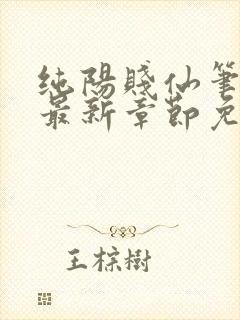 纯陽賤仙筆
最新章節免
王棕樹